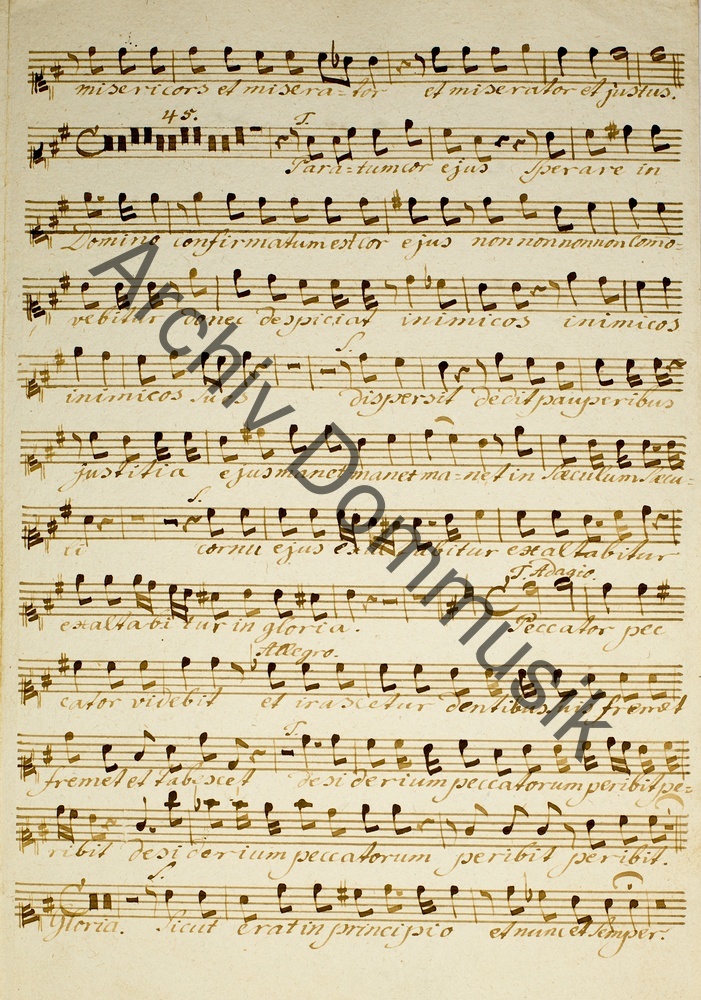 misericors et misera=tor et miserator et justus.
45. T.
Para=tum cor ejus Sperare in
Domino confirmatum est cor ejus non non non non Como=
vebitur donec despiciat inimicos inimicos
S.
inimicos suos dispersit dedit pauperibus
justitia ejus manet manet ma=net in Sæculum Sæcu=
S.
li cornu ejus exaltabitur exaltabitur
T. Adagio.
exaltabitur in gloria. Peccator pec
Allegro.
cator videbit et irascetur dentibus suis fremet
T.
fremet et tabescet desiderium peccatorum peribit pe=
ribit desiderium peccatorum peribit peribit.
S.
Gloria. Sicut erat in principio et nunc et Semper.
Archiv Dommusik